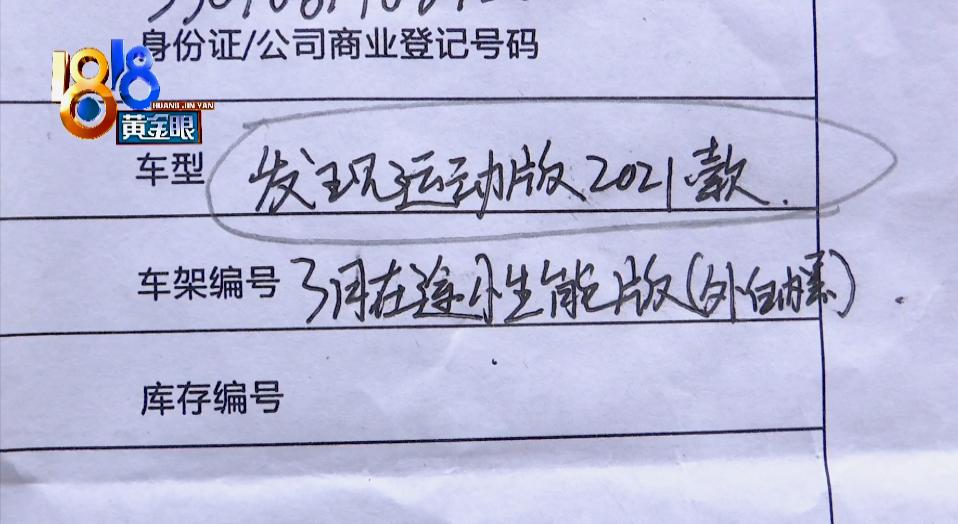 身份证/公司商业登记号码
1818
HUANG JIN YAN
黄金眼
车型 发现运动版2021款.
车架编号 3月在途 性能版(外白内黑).
库存编号